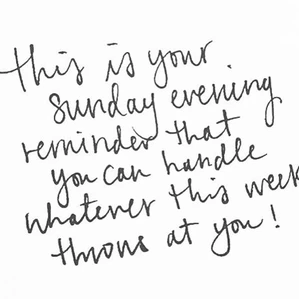 this is your
sunday evening
reminder that
you can handle
whatever this week
throws at you!